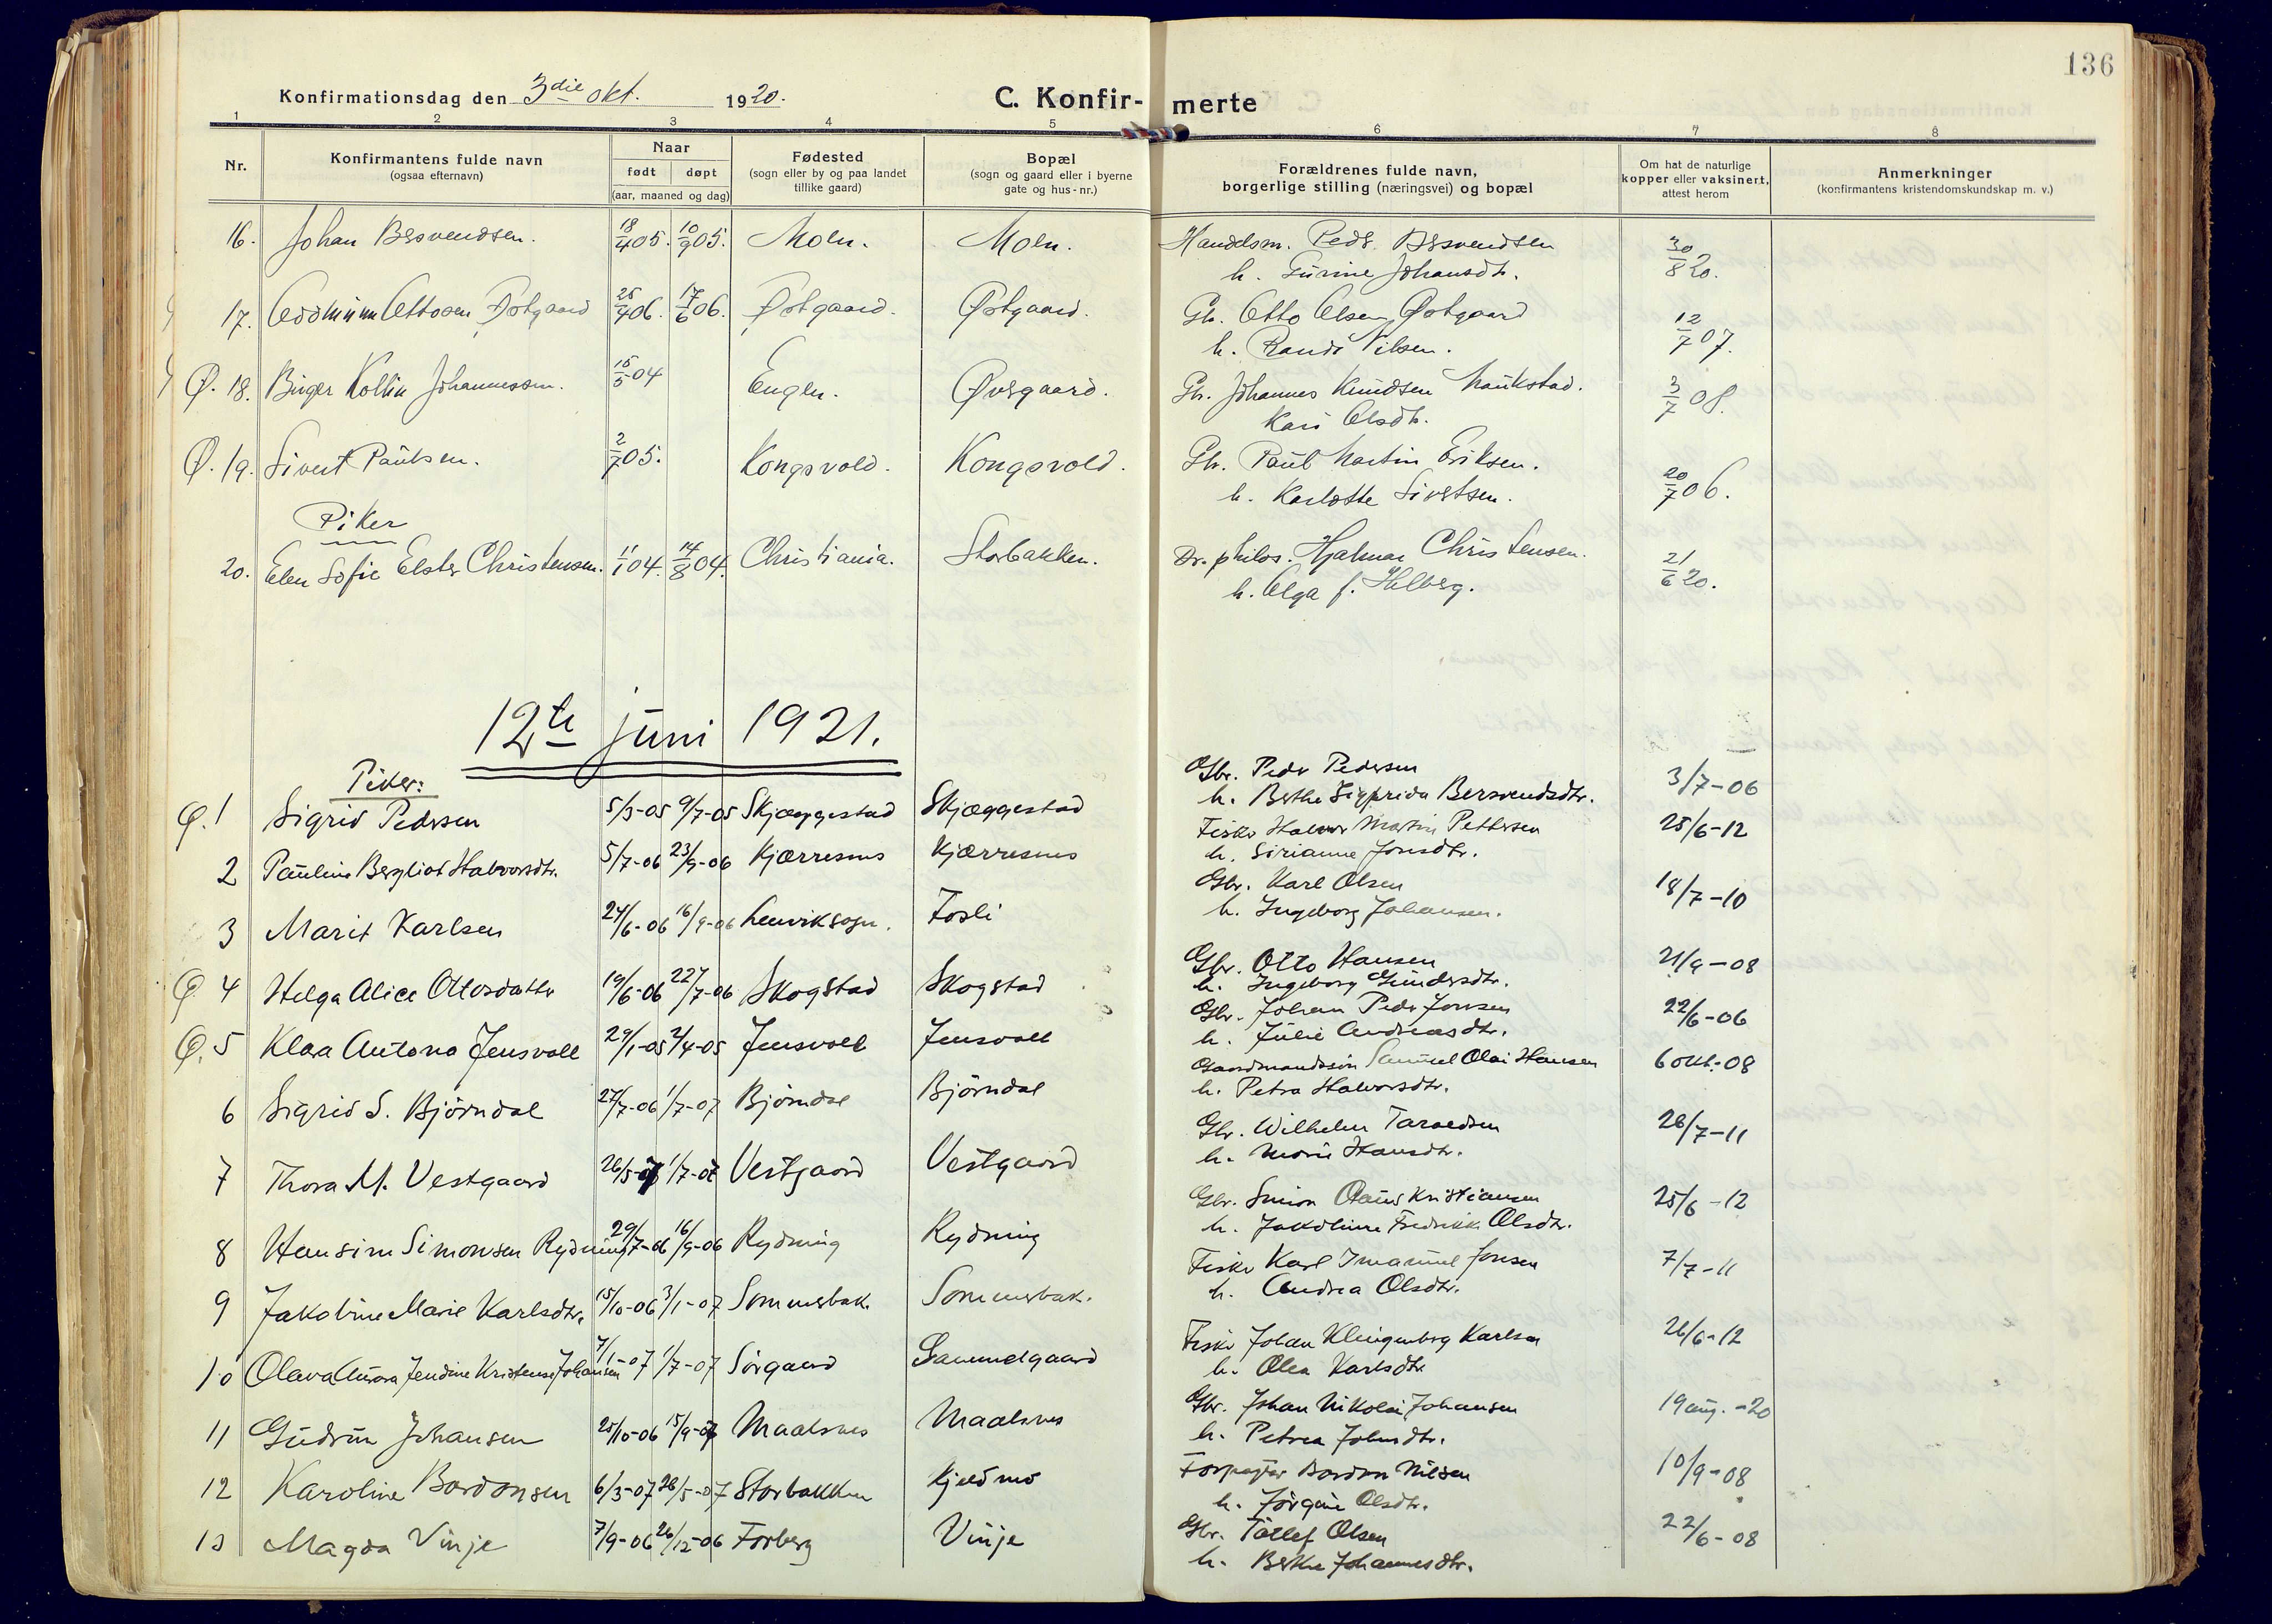 136
Konfirmationsdag den 3die okt. 1920. C. Konfir- merte
1 2 3 4 5 6 7 8
Nr. Konfirmantens fulde navn (ogsaa efternavn) Naar født døpt (aar, maaned og dag) Fødested (sogn eller by og paa landet tillike gaard) Bopæl (sogn og gaard eller i byerne gate og hus-nr.) Forældrenes fulde navn, borgerlige stilling (næringsvei) og bopæl Om hat de naturlige kopper eller vaksinert, attest herom Anmerkninger (konfirmantens kristendomskundskap m. v.)
16. Johan Bersvendsen. 18/4 05. 10/9 05. Moen. Moen. Handelsm. Peder Bersvendsen 30/8 20.
h. Gurine Johansdtr.
17. Oddmunn Ottosen Østgaard 25/4 06. 17/6 06. Østgaard. Østgaard. Gb. Otto Olsen Østgaard 12/7 07.
h. Randi Nilsen.
Ø. 18. Birger Kollin Johannessen. 15/5 04 Engen. Øvergaard. Gb. Johannes Knudsen Maukstad. 3/7 08.
Kari Olsdtr.
Ø. 19. Sivert Paulsen. 2/7 05. Kongsvold. Kongsvold. Gb. Paul Martin Eriksen. 20/7 06.
h. Karlotte Sivertsen.
Piker
20. Elen Sofie Elster Christensen. 11/1 04. 14/8 04. Christiania. Storbakken. Dr. philos. Hjalmar Christensen. 21/6 20.
h. Olga f. Helberg.
12te juni 1921.
Piker:
Ø. 1 Sigrid Pedersen 5/3-05 9/7-05 Skjæggestad Skjæggestad Gbr. Peder Pedersen 3/7-06
h. Berthe Sigfrida Bersvendsdtr.
2 Pauline Bergliot Halvorsdtr. 5/7-06 23/9-06 Kjærresnes Kjærresnes Fisker Halvor Martin Pettersen 25/6-12
h. Sirianne Jonsdtr.
3 Marit Karlsen 24/6-06 16/9-06 Lenvik sogn. Fosli Gbr. Karl Olsen 18/7-10
h. Ingeborg Johansen.
Ø. 4 Helga Alice Ottosdatter 19/6-06 22/7-06 Skogstad Skogstad Gbr. Otto Hansen 21/9-08
h. Ingeborg Gundersdtr.
Ø. 5 Klaa Antona Jensvoll 29/1-05 2/4-05 Jensvoll Jensvoll Gbr. Johan Peder Jonsen 22/6-06
h. Julie Andreasdtr.
6 Sigrid S. Bjørndal 27/7-06 1/7-07 Bjørndal Bjørndal Gaardmandssøn Samuel Olai Hansen 6 okt.-08
h. Petra Halvorsdtr.
7 Thora M. Vestgaard 26/5-07 1/7-07 Vestgaard Vestgaard Gbr. Wilhelm Taraldsen 26/7-11
h. Marie Hansdtr.
8 Hansine Simonsen Rydning 29/7-06 16/9-06 Rydning Rydning Gbr. Simon Olaus Kristiansen 25/6-12
h. Jakobine Fredrikk. Olsdtr.
9 Jakobine Marie Karlsdtr. 15/10-06 3/1-07 Sommerbak. Sommerbak. Fisker Karl Imanuel Jonsen 7/7-11
h. Andrea Olsdtr.
10 Olava Aurora Jendine Kristense Johansen 7/1-07 1/7-07 Sørgaard Samuelgaard Fisker Johan Klingenberg Karlsen 26/6-12
h. Olea Karlsdtr
11 Gudrun Johansen 25/10-06 15/9-07 Maalsnes Maalsnes Gbr. Johan Nikolai Johansen 19 aug.-20
h. Petrea Johnsdtr.
12 Karoline Bardonsen 6/3-07 26/5-07 Storbakken Kjeldmo Forpagter Bardon Nilsen 10/9-08
h. Jørgine Olsdtr.
13 Magda Vinje 7/9-06 26/12-06 Forberg Vinje Gbr. Tollef Olsen 22/6-08
h. Berthe Johannesdtr.